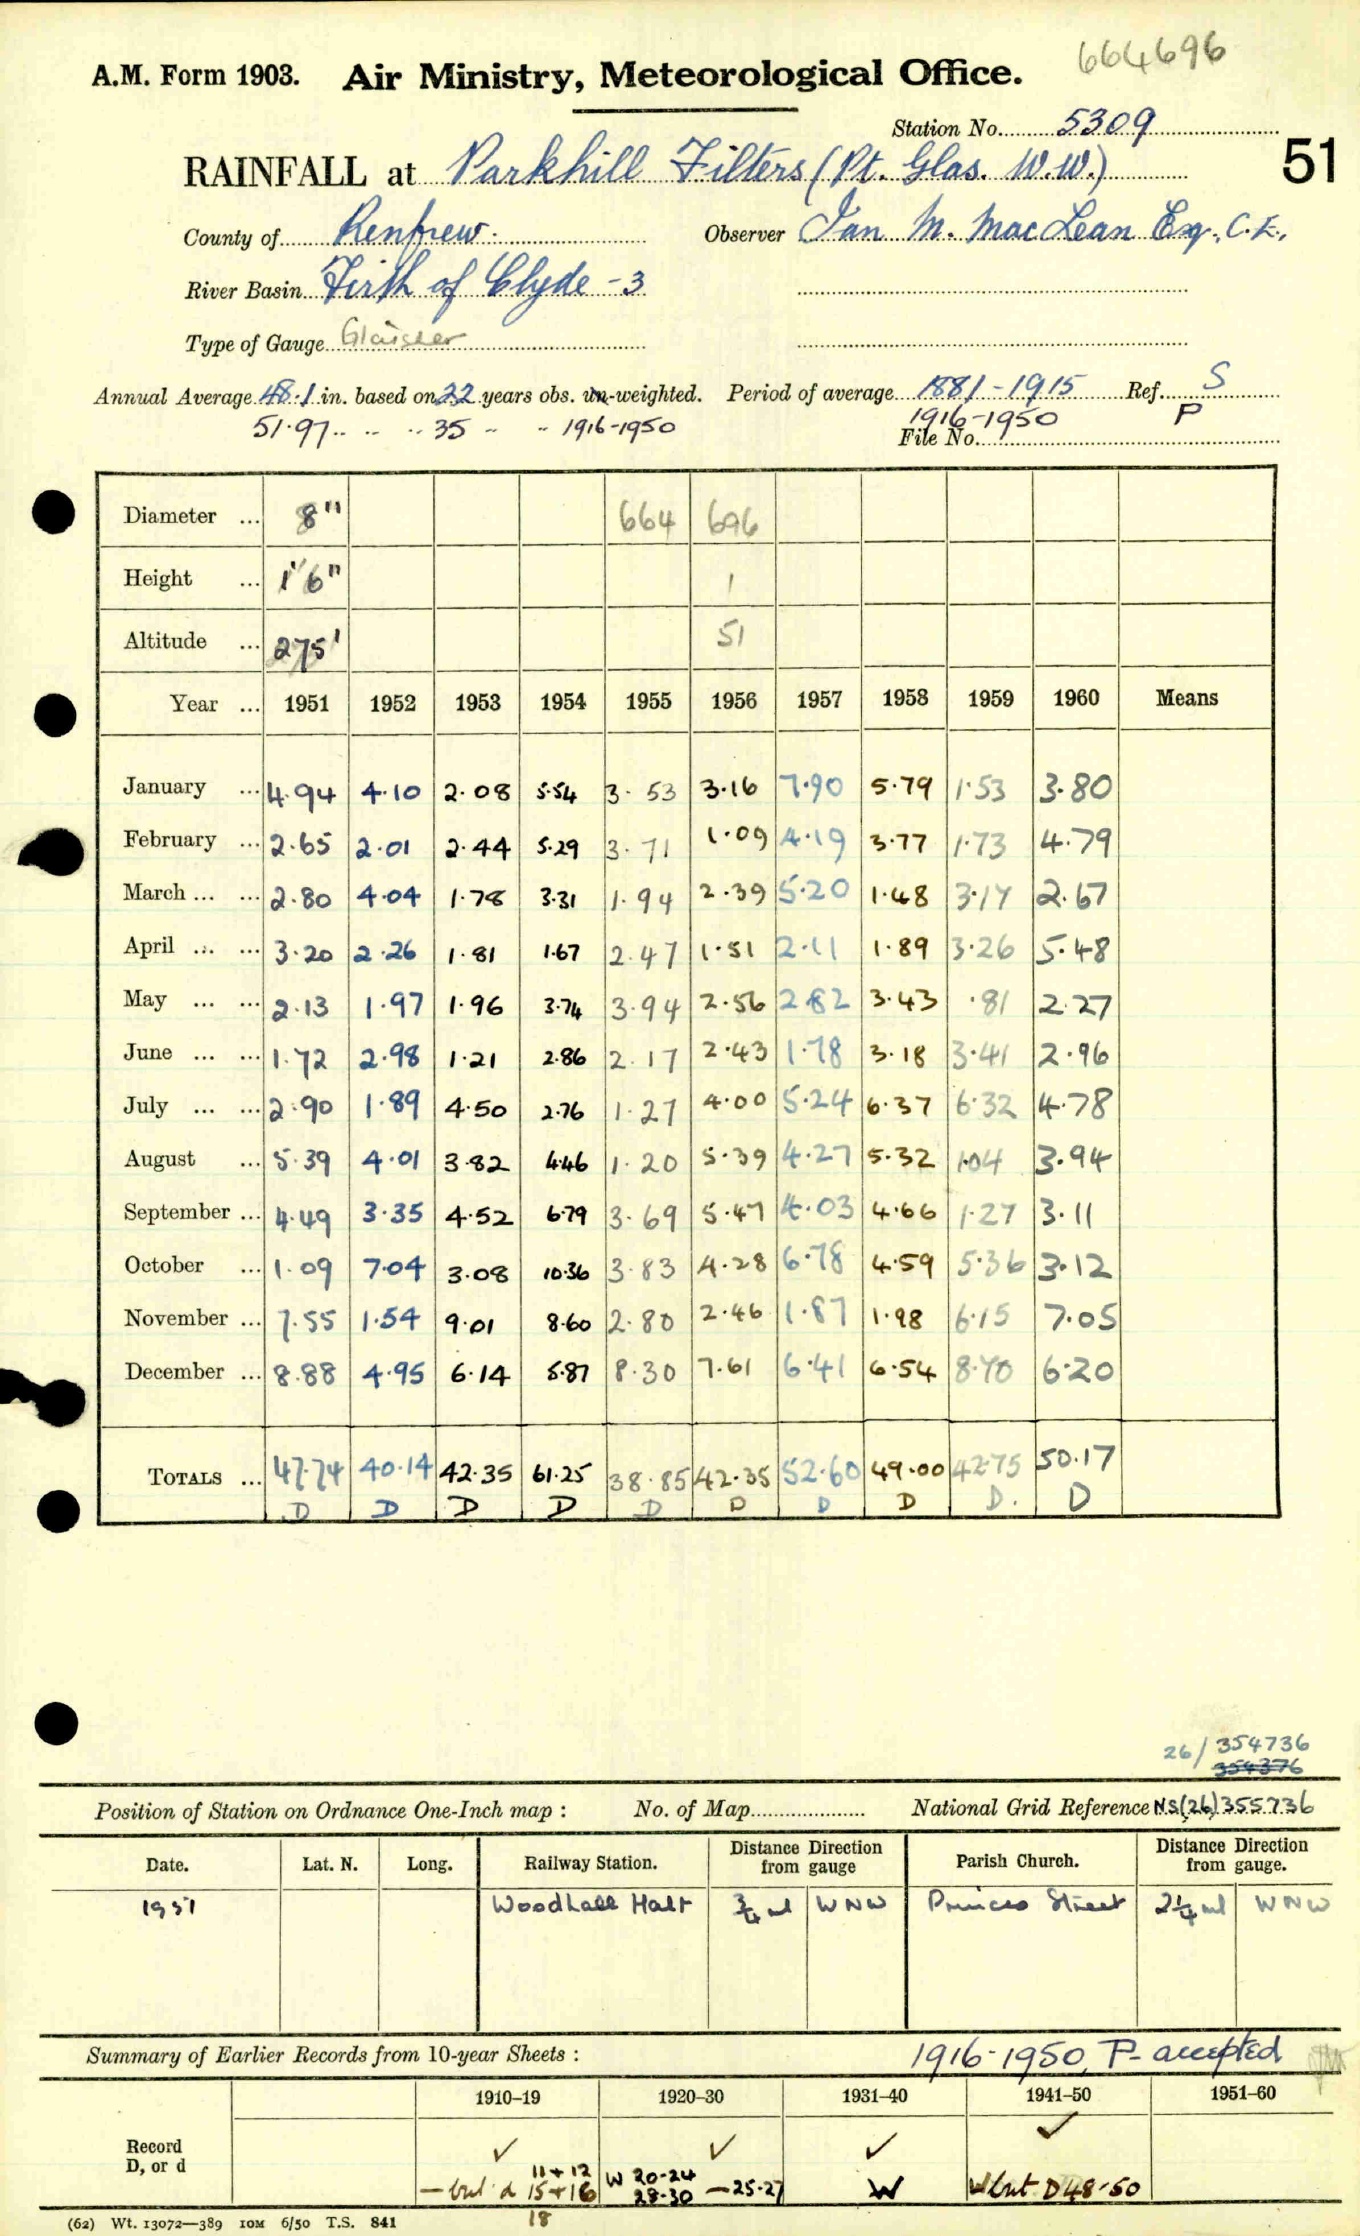 664696
A.M. Form 1903. Air Ministry, Meteorological Office.
Station No. 5309
RAINFALL at Parkhill Filters (Pt. Glas. W.W.) 51
County of Renfrew. Observer Ian M. MacLean Esq., C.E.,
River Basin Firth of Clyde -3
Type of Gauge Glaisher
Annual Average 48.1 in. based on 22 years obs. un-weighted. Period of average 1881-1915 Ref. S
51.97 .. .. .. 35 .. .. 1916-1950 1916-1950 P
File No.
Diameter ... 8" 664 696
Height ... 1'6" 1
Altitude ... 275' 51
Year ... 1951 1952 1953 1954 1955 1956 1957 1958 1959 1960 Means
January ... 4.94 4.10 2.08 5.54 3.53 3.16 7.90 5.79 1.53 3.80
February ... 2.65 2.01 2.44 5.29 3.71 1.09 4.19 3.77 1.73 4.79
March ... ... 2.80 4.04 1.78 3.31 1.94 2.39 5.20 1.48 3.17 2.67
April ... ... 3.20 2.26 1.81 1.67 2.47 1.51 2.11 1.89 3.26 5.48
May ... ... 2.13 1.97 1.96 3.74 3.94 2.56 2.82 3.43 .81 2.27
June ... ... 1.72 2.98 1.21 2.86 2.17 2.43 1.78 3.18 3.41 2.96
July ... ... 2.90 1.89 4.50 2.76 1.27 4.00 5.24 6.37 6.32 4.78
August ... 5.39 4.01 3.82 4.46 1.20 5.39 4.27 5.32 1.04 3.94
September ... 4.49 3.35 4.52 6.79 3.69 5.47 4.03 4.66 1.27 3.11
October ... 1.09 7.04 3.08 10.36 3.83 4.28 6.78 4.59 5.36 3.12
November ... 7.55 1.54 9.01 8.60 2.80 2.46 1.87 1.98 6.15 7.05
December ... 8.88 4.95 6.14 5.87 8.30 7.61 6.41 6.54 8.70 6.20
TOTALS ... 47.74 40.14 42.35 61.25 38.85 42.35 52.60 49.00 42.75 50.17
D D D D D D D D D. D
26/354736
354376
Position of Station on Ordnance One-Inch map : No. of Map National Grid Reference NS(26)355736
Date. Lat. N. Long. Railway Station. Distance Direction from gauge Parish Church. Distance Direction from gauge.
1951 Woodhall Halt 3/4 ml WNW Princes Street 2 1/4 ml WNW
Summary of Earlier Records from 10-year Sheets : 1916-1950, P accepted
1910–19 1920–30 1931–40 1941–50 1951–60
Record D, or d ✓ ✓ ✓ ✓
11+12
— but d 15+16 W 20-24 28-30 — 25-27 W W but D 48-50
18
(62) Wt. 13072—389 10M 6/50 T.S. 841